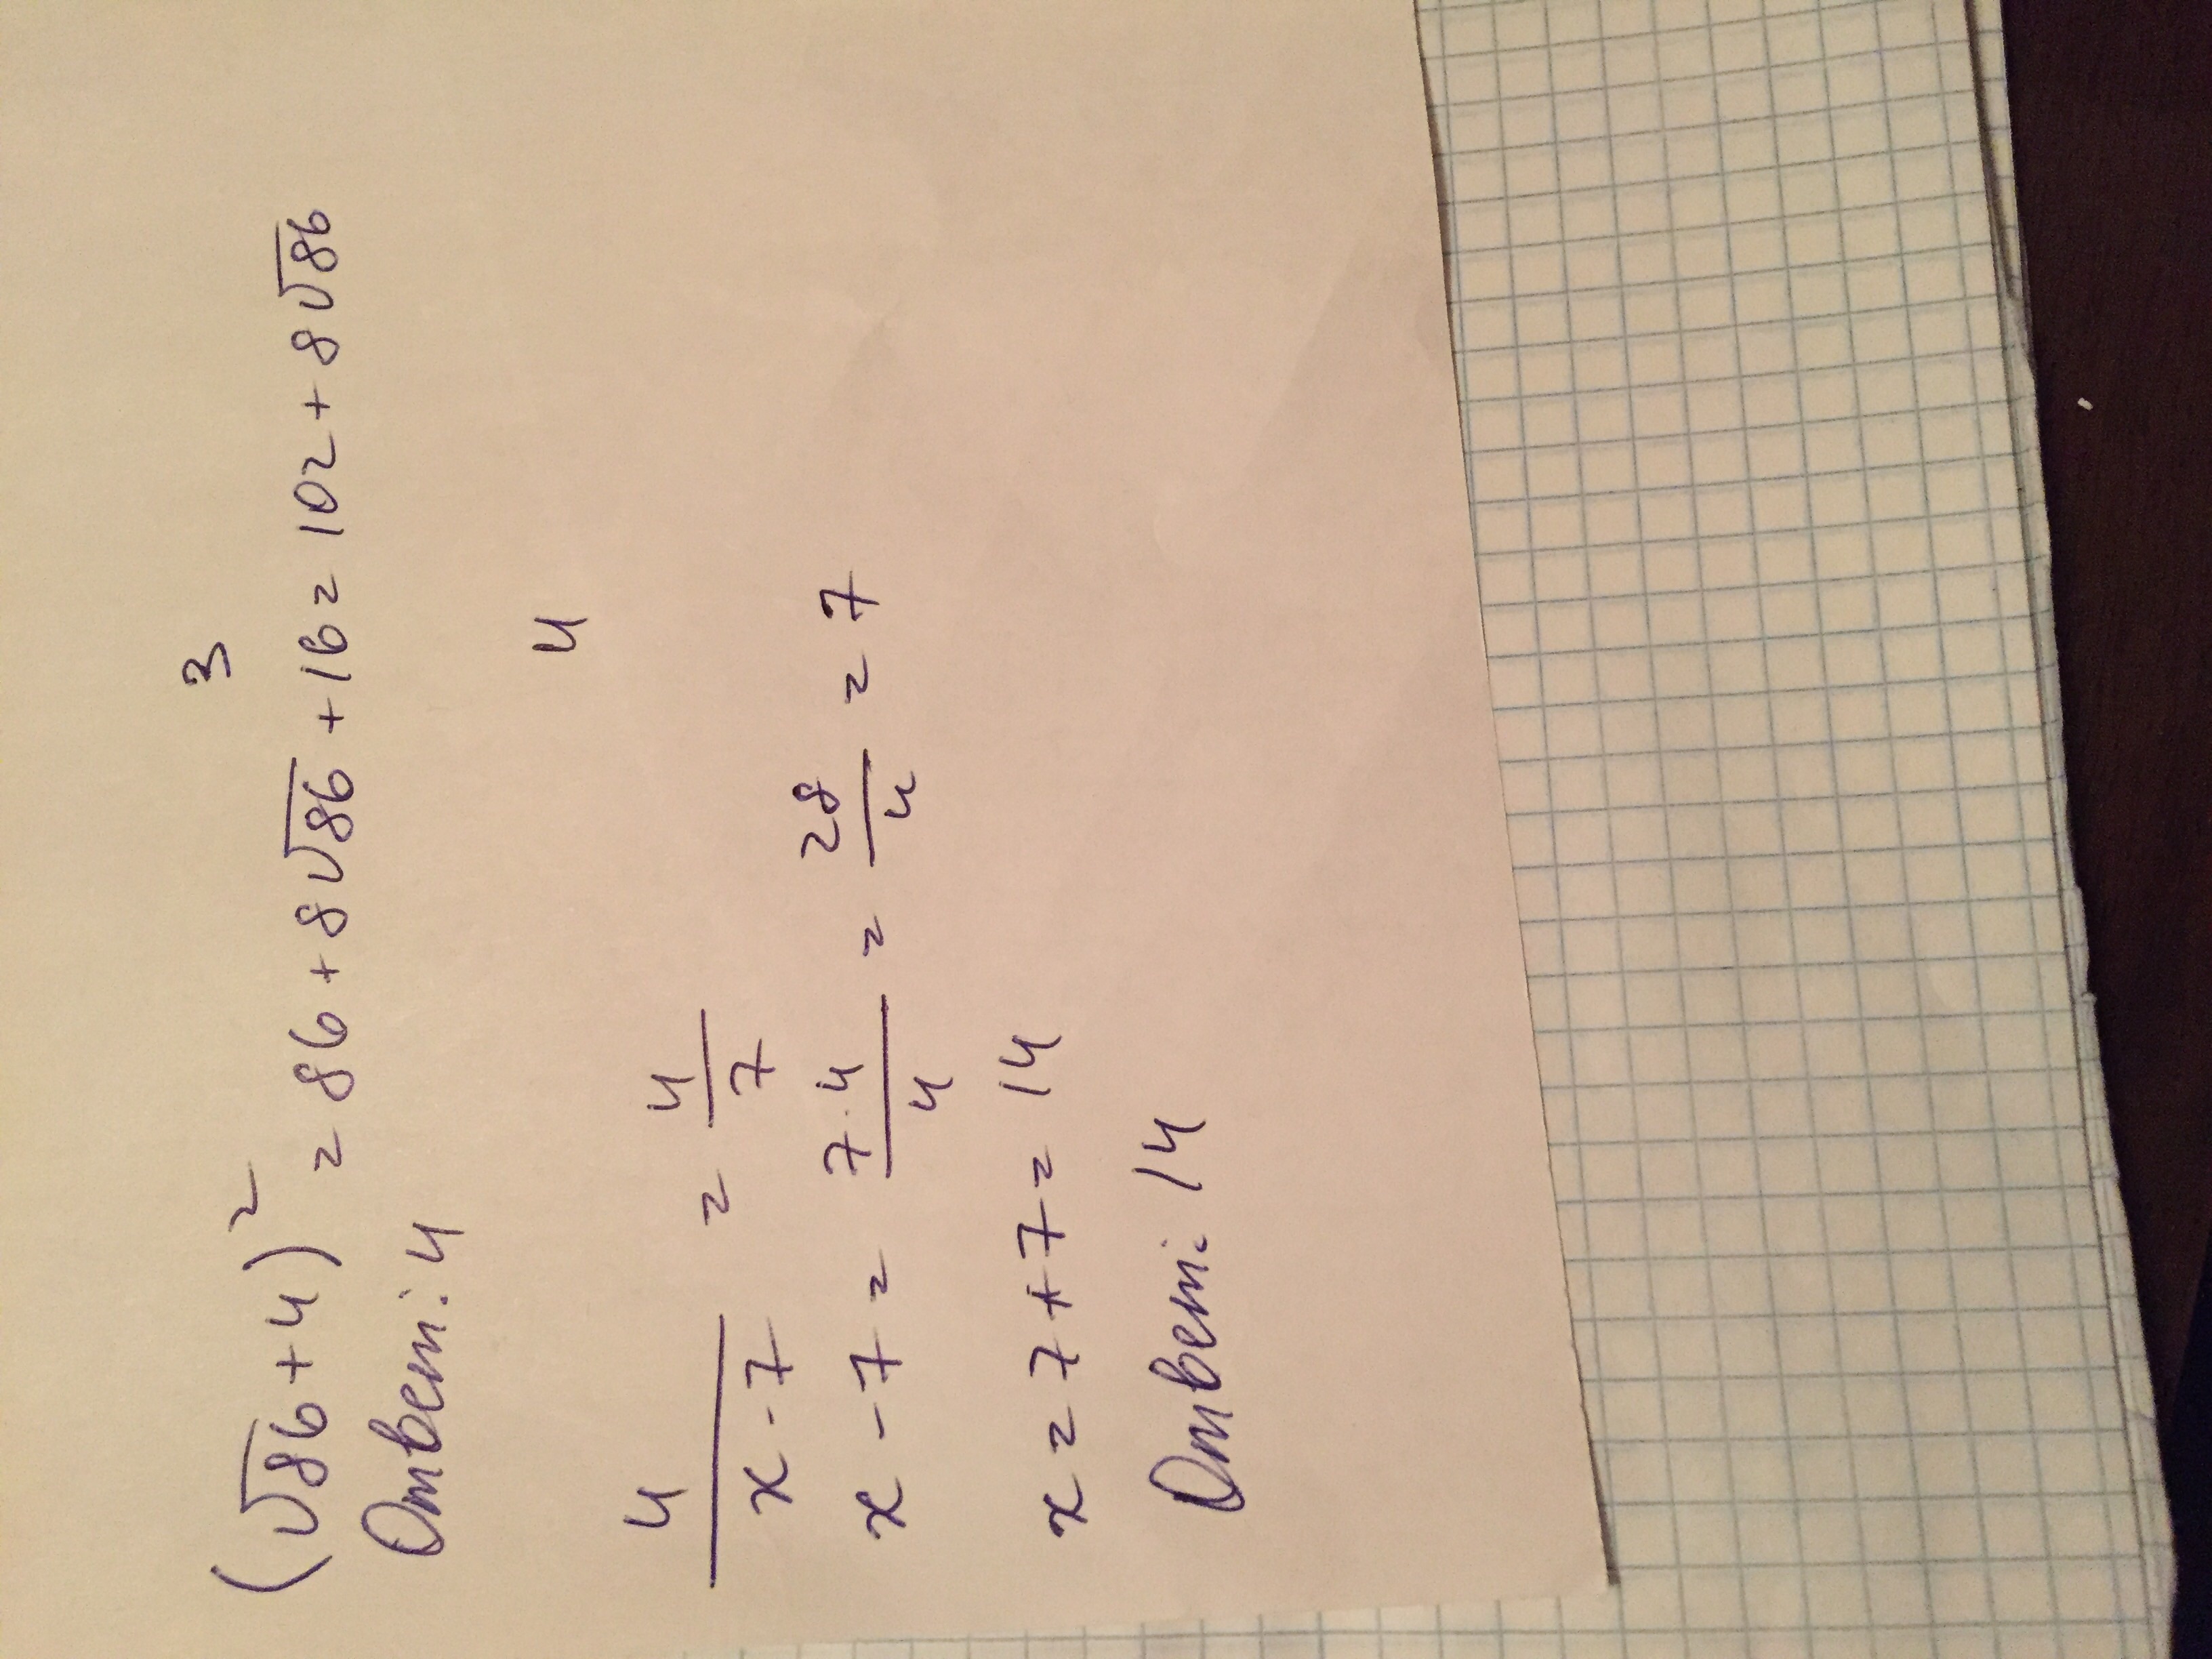 3
(√86+4)² = 86+8√86+16=102+8√86
Ответ: 4
4
4/(x-7) = 4/7
x-7= (7·4)/4 = 28/4 = 7
x=7+7=14
Ответ: 14